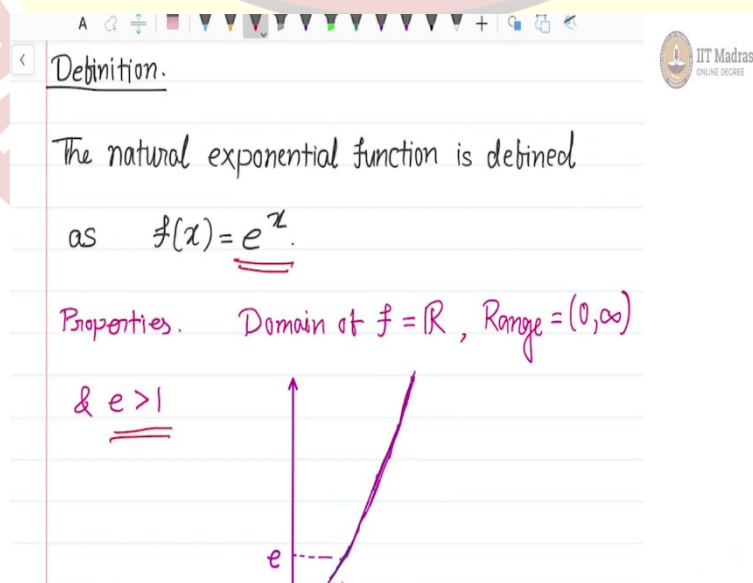 A
IIT Madras
ONLINE DEGREE
Definition.
The natural exponential function is defined
as f(x) = e^x.
Properties. Domain of f = ℝ, Range = (0,∞)
& e > 1
e